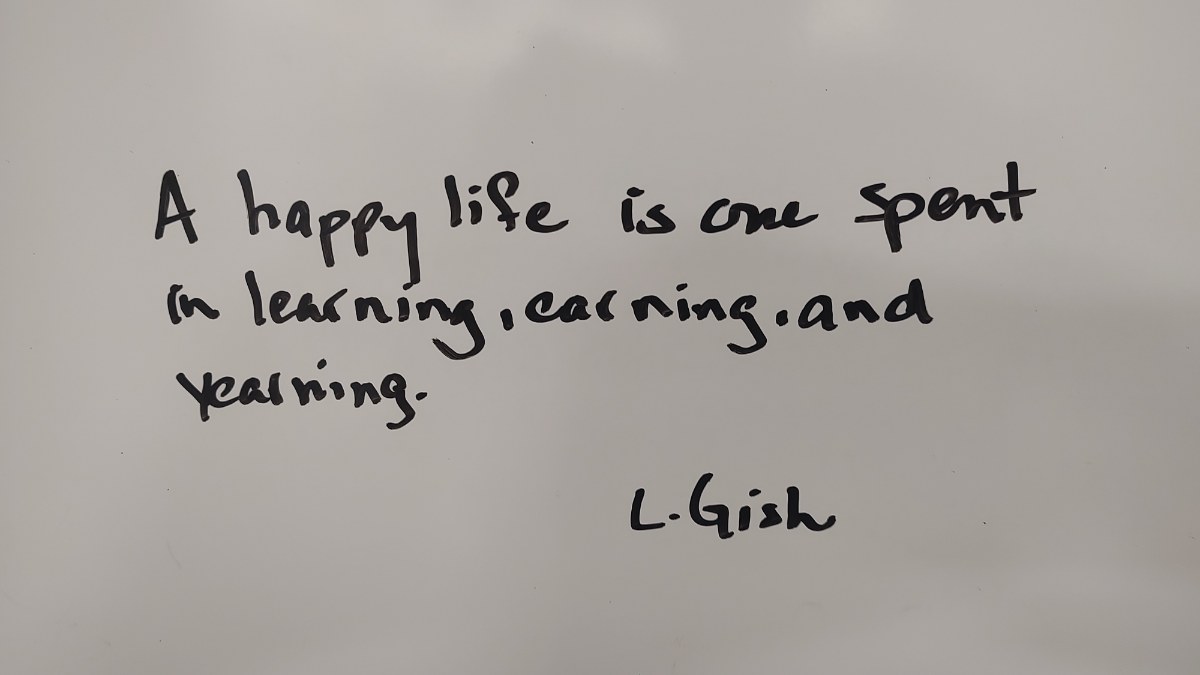 A happy life is one spent
in learning, earning, and
yearning.
L. Gish